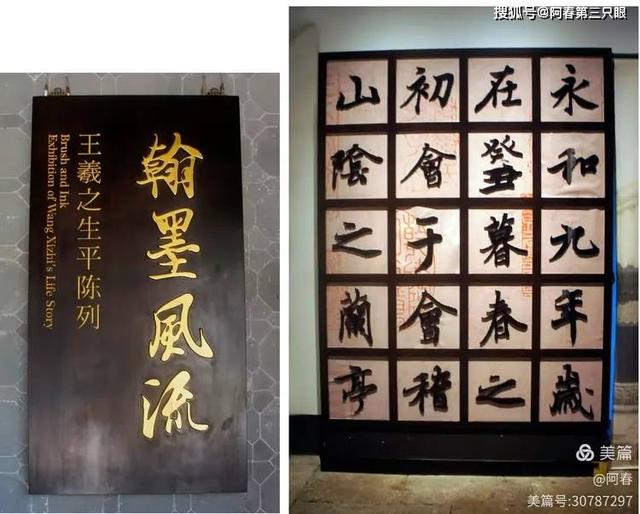 翰墨風流
王羲之生平陈列
Brush and Ink
Exhibition of Wang Xizhi's Life Story
搜狐号@阿春第三只眼
永和九年歲
在癸丑暮春之
初會于會稽
山陰之蘭亭
美篇
@阿春
美篇号:30787297